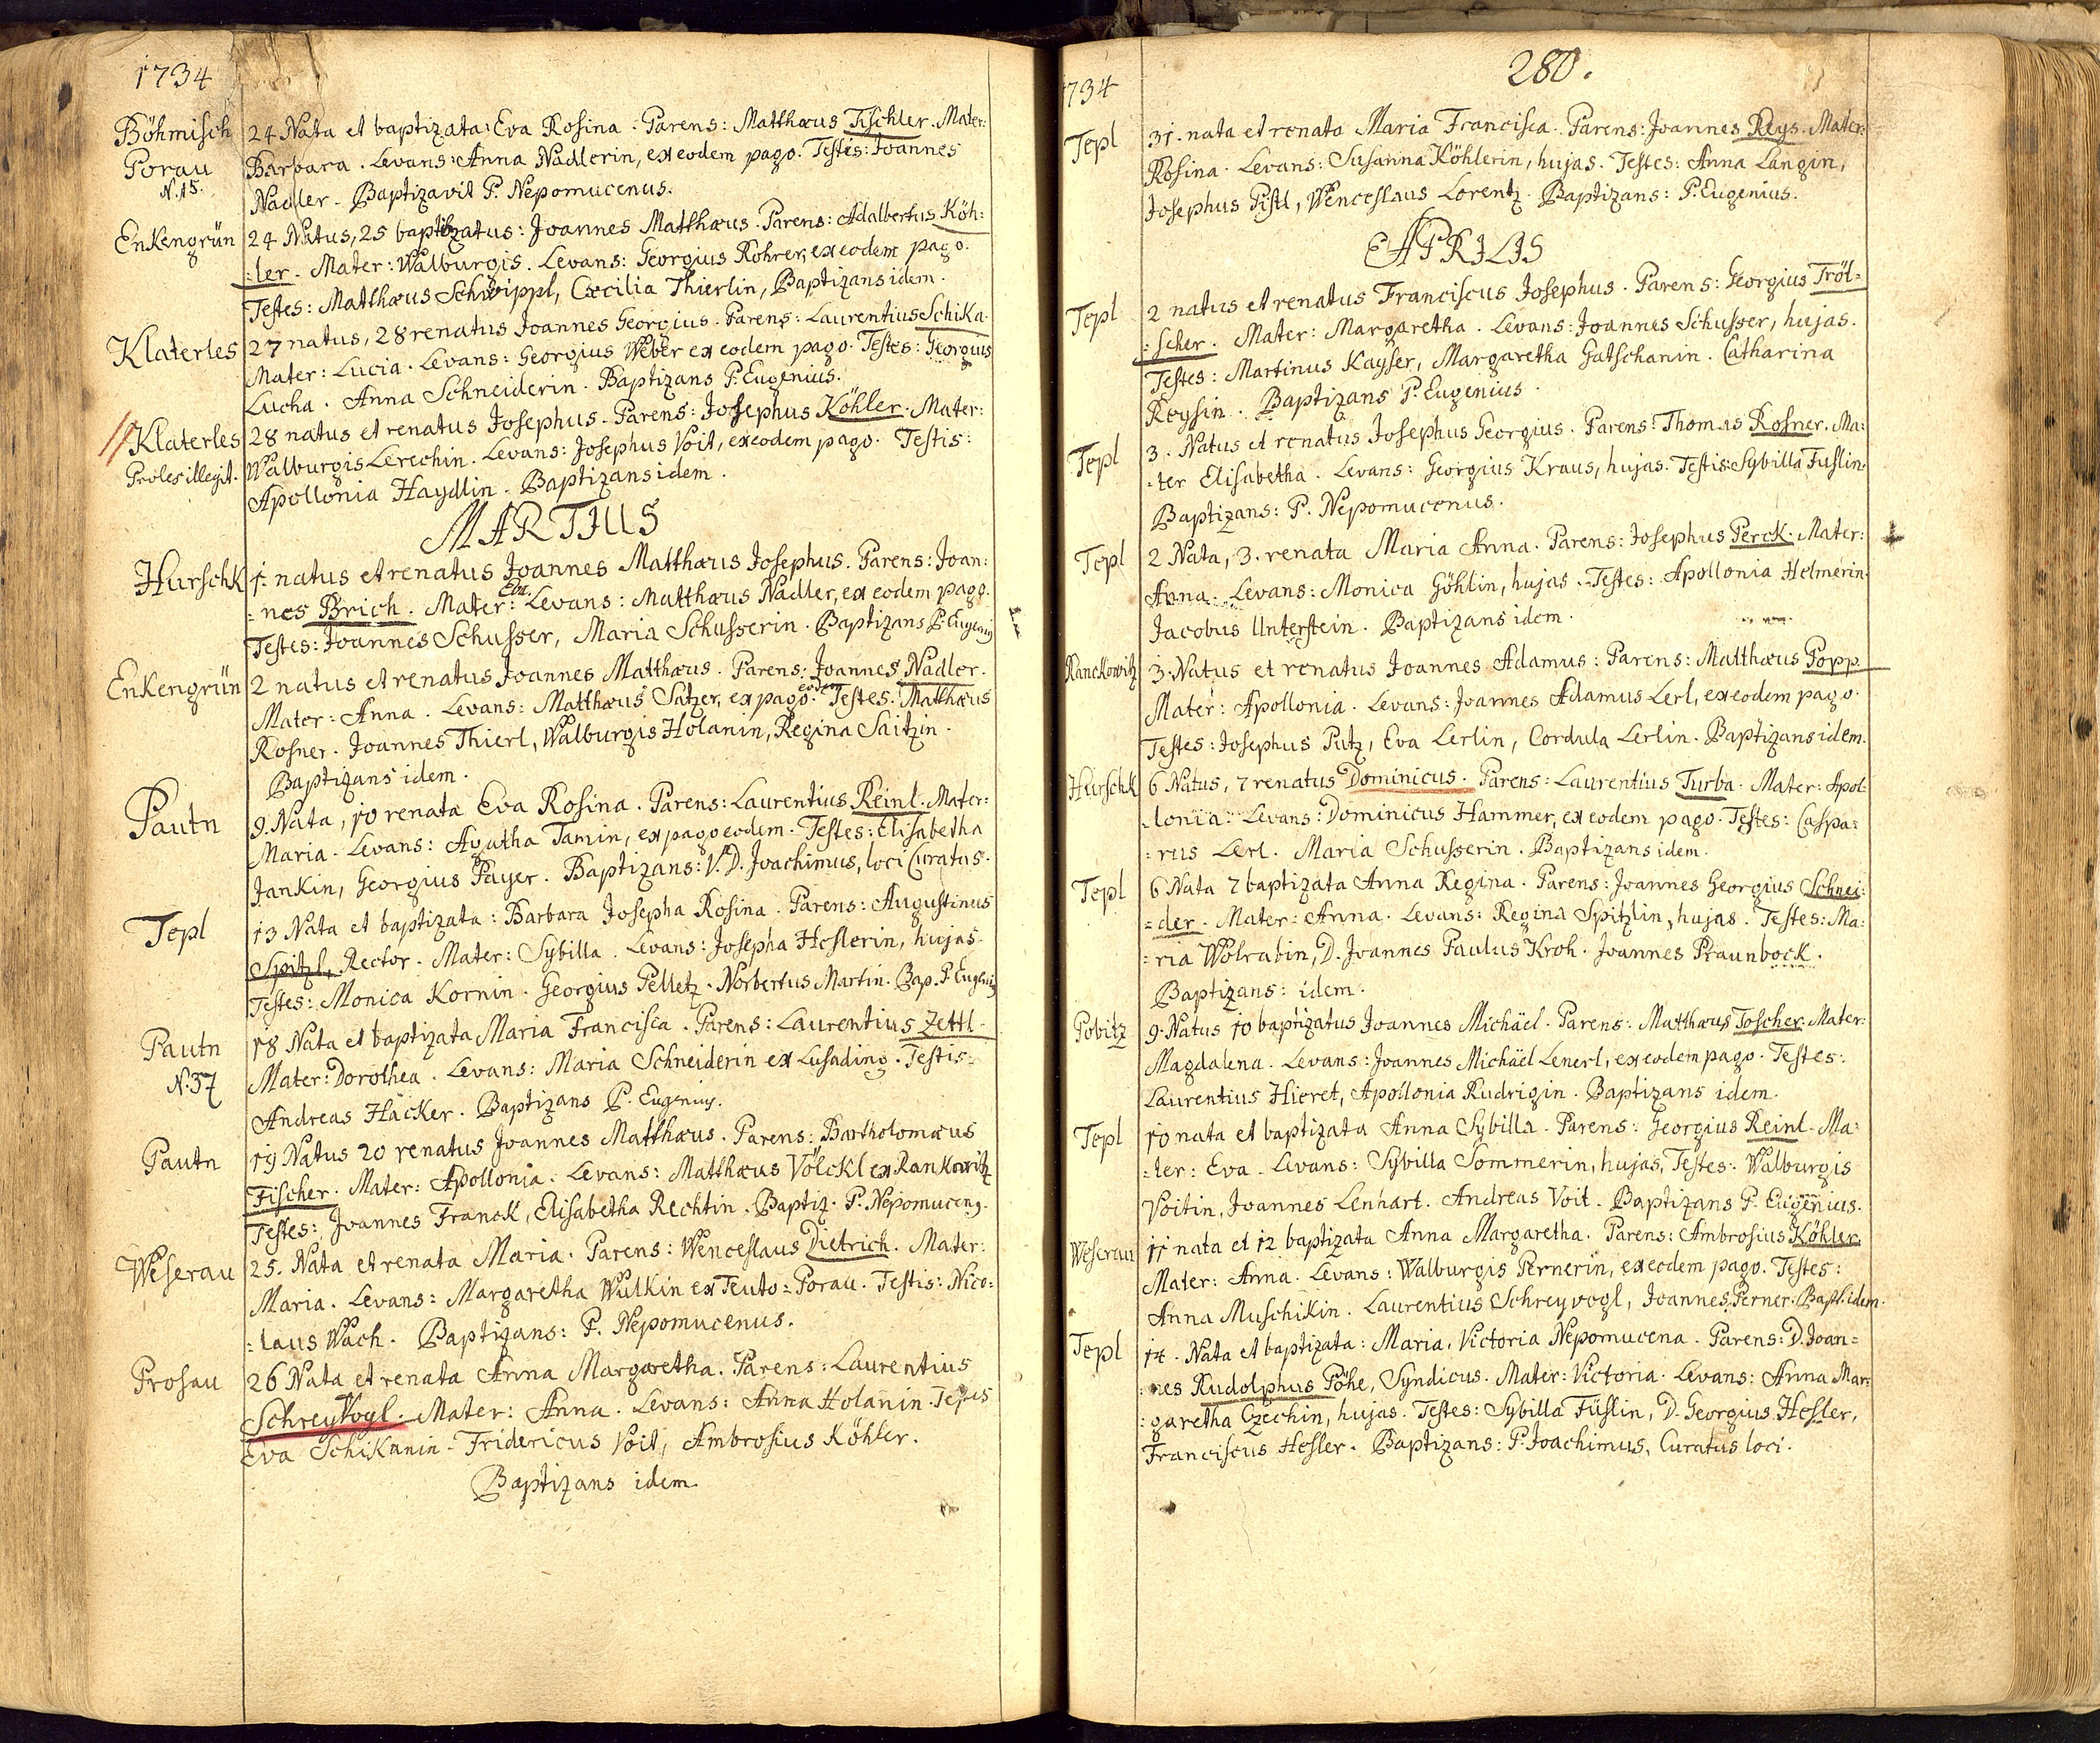 1734
Böhmisch
Porau
N. 15.
24 Nata et baptizata: Eva Rosina. Parens: Matthæus Tischler. Mater:
Barbara. Levans: Anna Nadlerin, ex eodem pago. Testis: Joannes
Nadler. Baptizavit P. Nepomucenus.
Enkengrün
24 Natus, 25 baptizatus: Joannes Matthæus. Parens: Adalbertus Köh:
:ler. Mater: Walburgis. Levans: Georgius Rohrer, ex eodem pago.
Testes: Matthæus Schwippl, Cæcilia Thierlin, Baptizans idem.
Klaterles
27 natus, 28 renatus Joannes Georgius. Parens: Laurentius Schika.
Mater: Lucia. Levans: Georgius Weber ex eodem pago. Testes: Georgius
Lucha. Anna Schneiderin. Baptizans P. Eugenius.
Klaterles
Proles illegit.
28 natus et renatus Josephus. Parens: Josephus Köhler. Mater:
Walburgis Lerechin. Levans: Josephus Voit, ex eodem pago. Testis:
Apollonia Haydlin. Baptizans idem.
MARTIUS
Hurschk
1. natus et renatus Joannes Matthæus Josephus. Parens: Joan:
:nes Brich. Mater: Levans: Matthæus Nadler, ex eodem pago.
Testes: Joannes Schusser, Maria Schusserin. Baptizans P. Eugeni9
Enkengrün
2 natus et renatus Joannes Matthæus. Parens: Joannes Nadler.
Mater: Anna. Levans: Matthæus Satzer, ex pago eodem Testes: Matthæus
Rosner. Joannes Thierl, Walburgis Holanin, Regina Saitzin.
Baptizans idem.
Pautn
9. Nata, 10 renata Eva Rosina. Parens: Laurentius Reinl. Mater:
Maria. Levans: Agatha Tamin, ex pago eodem. Testes: Elisabetha
Jankin, Georgius Payer. Baptizans: V. D. Joachimus, loci Curatus.
Tepl
13 Nata et baptizata: Barbara Josepha Rosina. Parens: Augustinus
Spitzl, Rector. Mater: Sybilla. Levans: Josepha Heslerin, hujas.
Testes: Monica Kornin. Georgius Pelletz. Norbertus Martin. Bap. P. Eugeni9
Pautn
N. 37
18 Nata et baptizata Maria Francisca. Parens: Laurentius Zettl.
Mater: Dorothea. Levans: Maria Schneiderin ex Lusading. Testis:
Andreas Häcker. Baptizans P. Eugeni9.
Pautn
19 Natus 20 renatus Joannes Matthæus. Parens: Bartholomæus
Fischer. Mater: Apollonia. Levans: Matthæus Völckl ex Rankowitz
Testes: Joannes Franck, Elisabetha Rechtin. Baptiz. P. Nepomucen9.
Weserau
25. Nata et renata Maria. Parens: Wenceslaus Dietrich. Mater:
Maria. Levans: Margaretha Wulkin ex Teuto=Porau. Testis: Nico:
:laus Wach. Baptizans: P. Nepomucenus.
Prosau
26 Nata et renata Anna Margaretha. Parens: Laurentius
Schreyvogl. Mater: Anna. Levans: Anna Holanin. Testes
Eva Schikanin. Fridericus Voit, Ambrosius Köhler.
Baptizans idem.
280.
1734
Tepl
31. nata et renata Maria Francisca. Parens: Joannes Reys. Mater:
Rosina. Levans: Susanna Köhlerin, hujas. Testes: Anna Langin,
Josephus Pistl, Wenceslaus Lorentz. Baptizans: P. Eugenius.
APRILIS
Tepl
2 natus et renatus Franciscus Josephus. Parens: Georgius Tröl:
:scher. Mater: Margaretha. Levans: Joannes Schusser, hujas.
Testes: Martinus Kayser, Margaretha Gatschanin. Catharina
Reysin. Baptizans P. Eugenius.
Tepl
3. Natus et renatus Josephus Georgius. Parens: Thomas Rosner. Ma:
:ter Elisabetha. Levans: Georgius Kraus, hujas. Testis: Sybilla Fuslin.
Baptizans: P. Nepomucenus.
Tepl
2 Nata, 3. renata Maria Anna. Parens: Josephus Perck. Mater:
Anna. Levans: Monica Göhlin, hujas. Testes: Apollonia Helmerin.
Jacobus Unterstein. Baptizans idem.
Ranckowitz
3. Natus et renatus Joannes Adamus: Parens: Matthæus Popp
Mater: Apollonia. Levans: Joannes Adamus Lerl, ex eodem pago.
Testes: Josephus Putz, Eva Lerlin, Cordula Lerlin. Baptizans idem.
Hurschk
6 Natus, 7 renatus Dominicus. Parens: Laurentius Turba. Mater: Apol:
:lonia. Levans: Dominicus Hammer, ex eodem pago. Testes: Caspa:
:rus Lerl. Maria Schusserin. Baptizans idem.
Tepl
6 Nata 7 baptizata Anna Regina. Parens: Joannes Georgius Schnei:
:der. Mater: Anna. Levans: Regina Spitzlin, hujas. Testes: Ma:
:ria Wolrabin, D. Joannes Paulus Kroh. Joannes Praunbock.
Baptizans: idem.
Pobitz
9. Natus 10 baptizatus Joannes Michäel. Parens: Matthæus Toscher. Mater:
Magdalena. Levans: Joannes Michäel Lenerl, ex eodem pago. Testes:
Laurentius Hieret, Apollonia Rudrigin. Baptizans idem.
Tepl
10 nata et baptizata Anna Sybilla. Parens: Georgius Reinl. Ma:
:ter: Eva. Levans: Sybilla Sommerin, hujas, Testes: Walburgis
Voitin, Joannes Lenhart. Andreas Voit. Baptizans P. Eugenius.
Weserau
11 nata et 12 baptizata Anna Margaretha. Parens: Ambrosius Köhler.
Mater: Anna. Levans: Walburgis Pernerin, ex eodem pago. Testes:
Anna Muschikin. Laurentius Schreyvogl, Joannes Perner. Bapt. idem.
Tepl
14. Nata et baptizata: Maria, Victoria Nepomucena. Parens: D. Joan=
:nes Rudolphus Pöhe, Syndicus. Mater: Victoria. Levans: Anna Mar:
:garetha Czechin, hujas. Testes: Sybilla Füslin, D. Georgius Hesler,
Franciscus Hesler. Baptizans: P. Joachimus, Curatus loci.